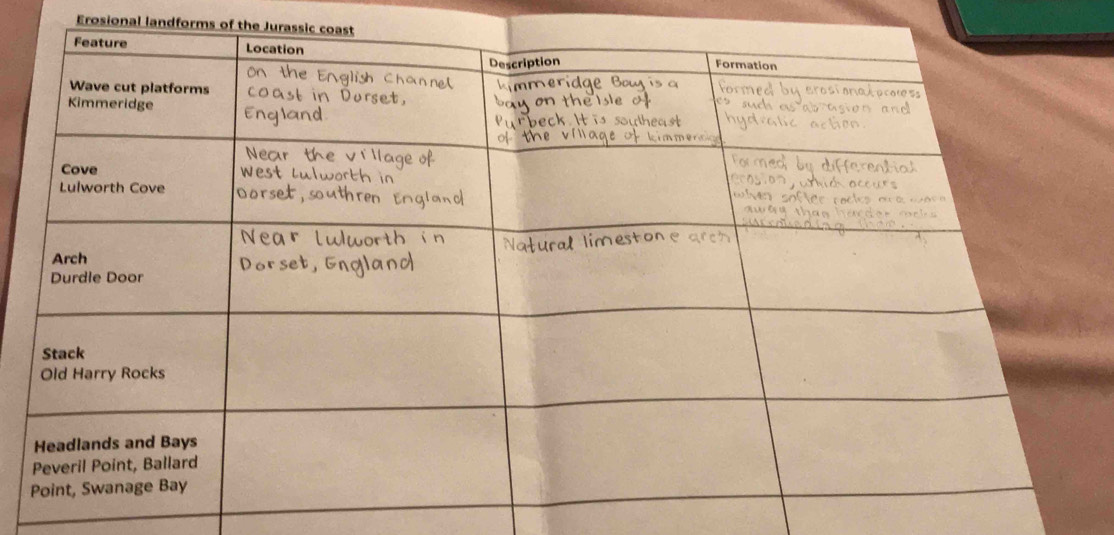 Erosional landforms of the Jurassic coast
Feature
Location
Description
Formation
Wave cut platforms
Kimmeridge
on the English Channel
coast in Dorset,
England
kimmeridge Bay is a
bay on the Isle of
Purbeck. It is southeast
of the village of kimmeridge
Formed by erosional process
es such as abrasion and
hydralic action.
Cove
Lulworth Cove
Near the village of
West Lulworth in
Dorset, southren England
Formed by differential
erosion, which occurs
when softer rocks are worn
away than harder rocks
surrounding them.
Arch
Durdle Door
Near lulworth in
Dorset, England
Natural limestone arch
Stack
Old Harry Rocks
Headlands and Bays
Peveril Point, Ballard
Point, Swanage Bay